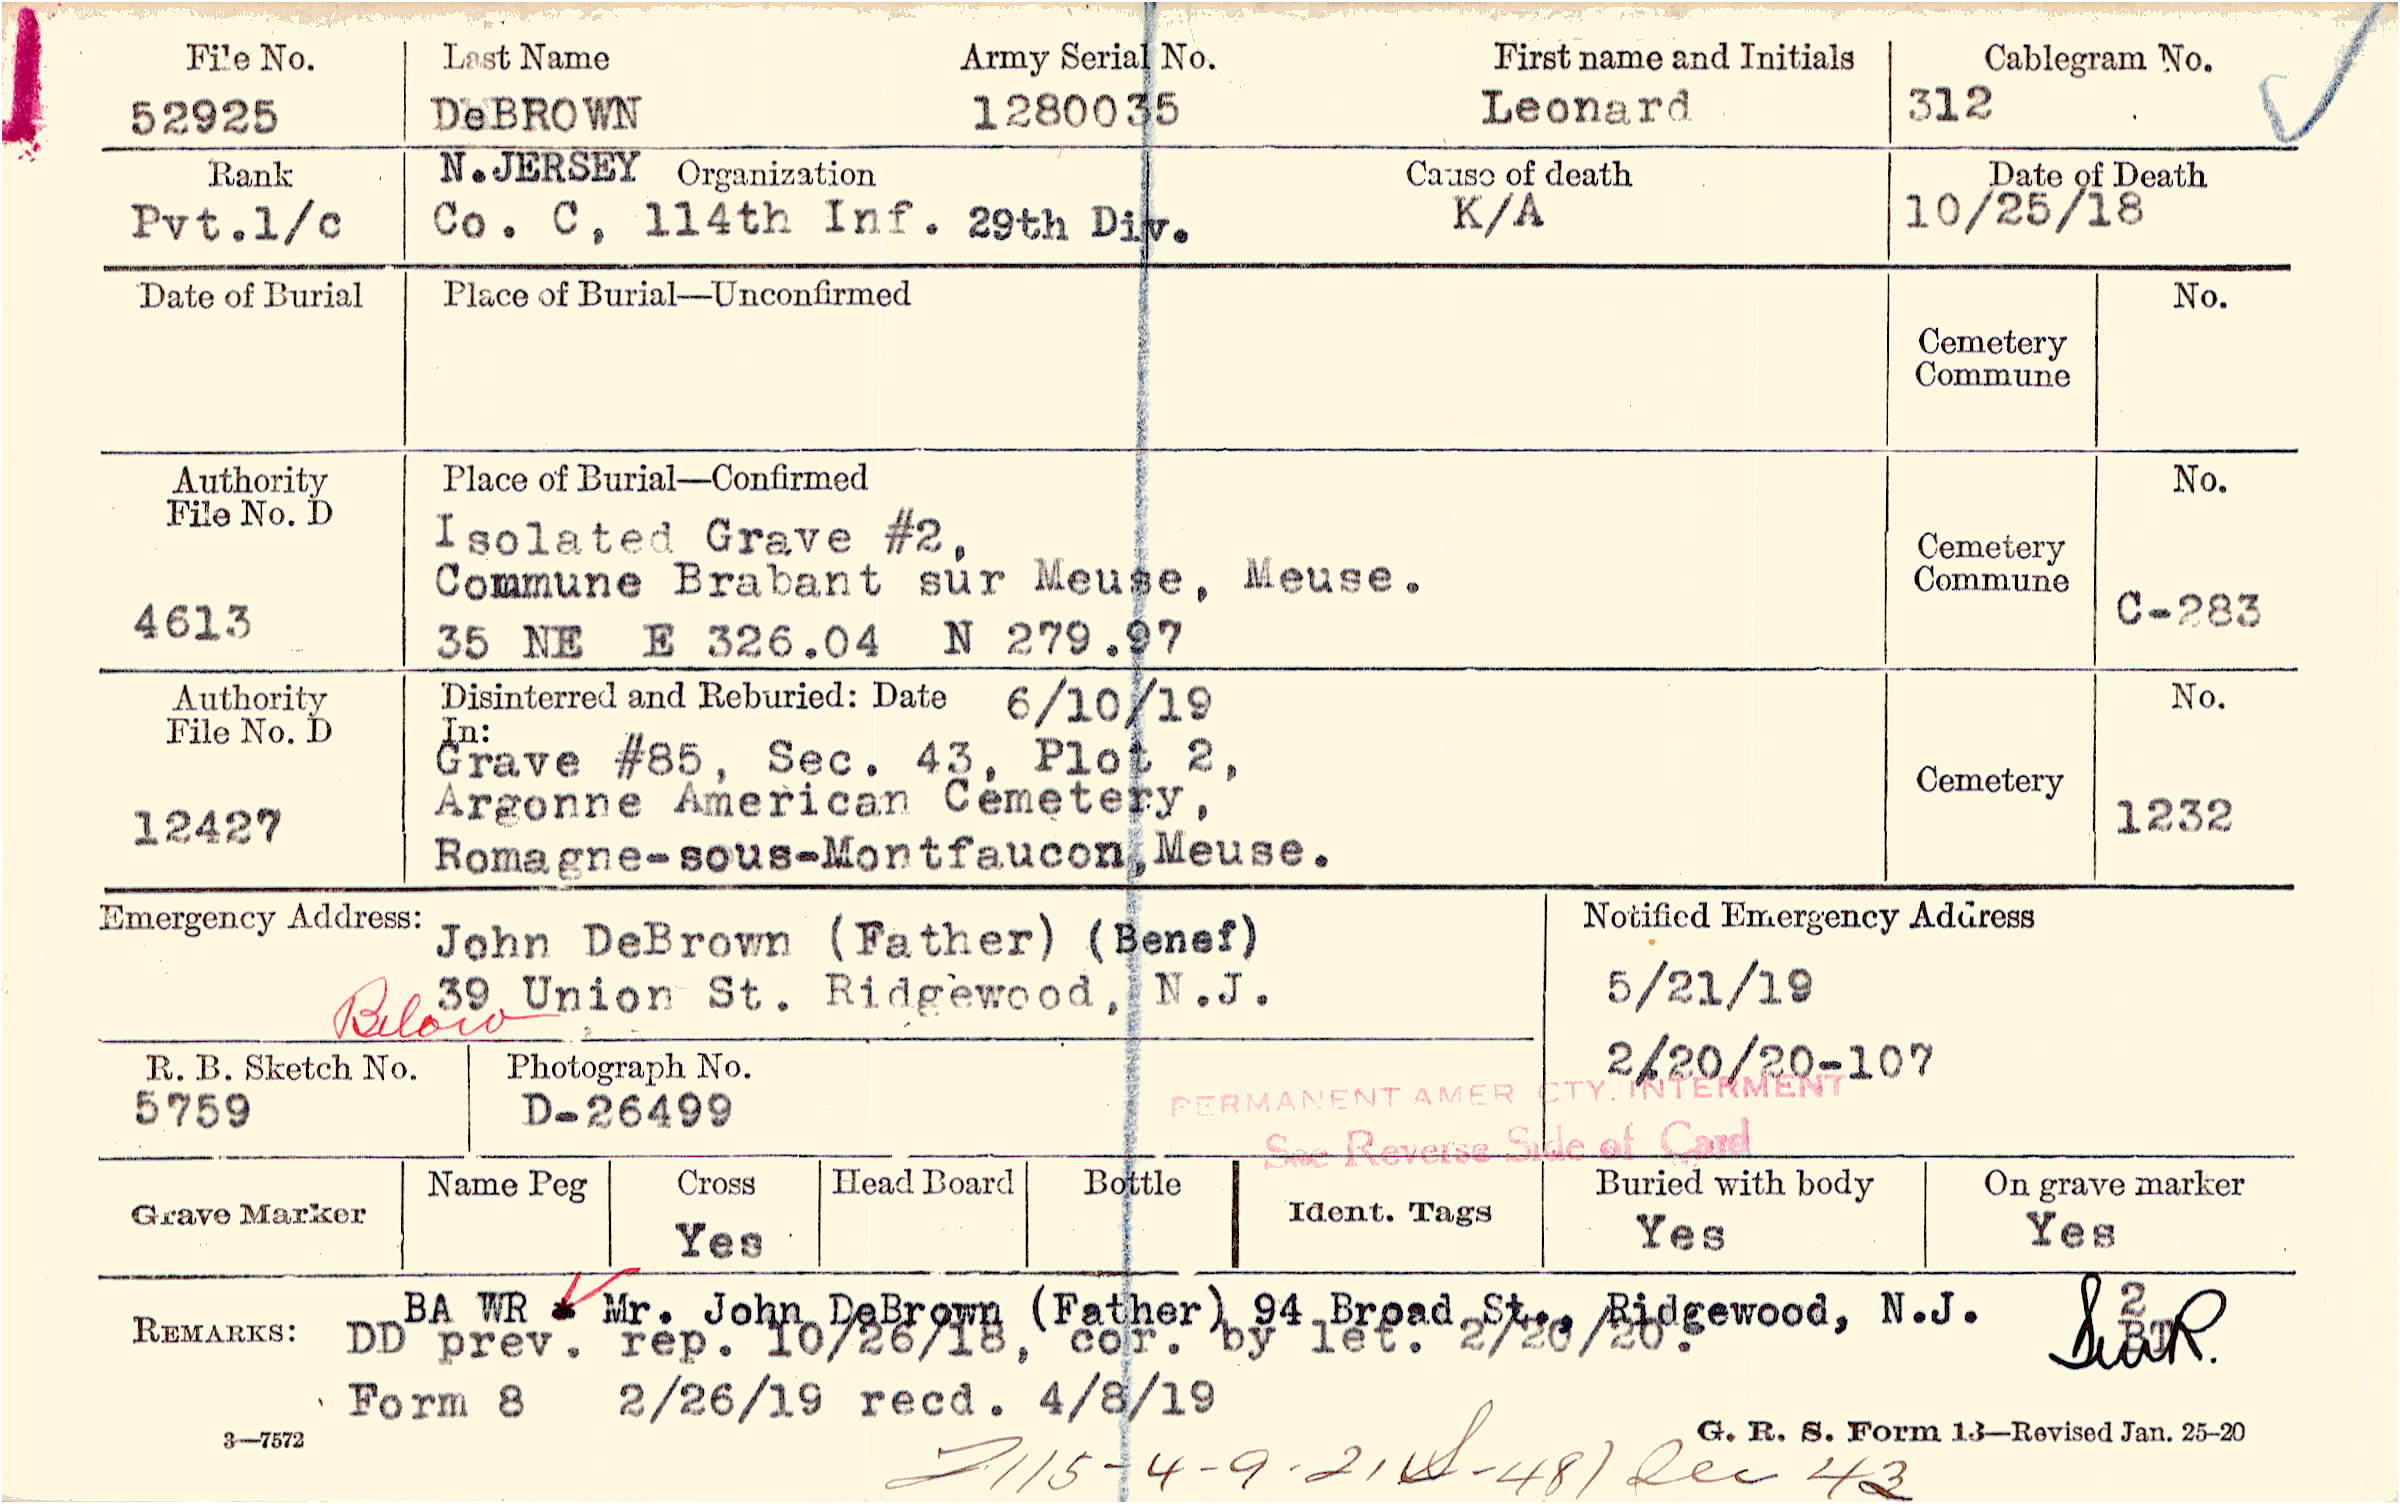 File No. Last Name Army Serial No. First name and Initials Cablegram No.
52925 DeBROWN 1280035 Leonard 312
Rank N.JERSEY Organization Cause of death Date of Death
Pvt.1/c Co. C, 114th Inf. 29th Div. K/A 10/25/18
Date of Burial Place of Burial—Unconfirmed No.
Cemetery
Commune
Authority Place of Burial—Confirmed No.
File No. D
Isolated Grave #2,
Cemetery
Commune Brabant sur Meuse, Meuse. Commune
4613 C-283
35 NE E 326.04 N 279.97
Authority Disinterred and Reburied: Date 6/10/19 No.
File No. D In:
Grave #85, Sec. 43, Plot 2,
Cemetery
Argonne American Cemetery,
12427 1232
Romagne-sous-Montfaucon, Meuse.
Emergency Address: Notified Emergency Address
John DeBrown (Father) (Benef)
39 Union St. Ridgewood, N.J. 5/21/19
Below
2/20/20-107
R. B. Sketch No. Photograph No.
5759 D-26499
PERMANENT AMER CTY. INTERMENT
See Reverse Side of Card
Grave Marker Name Peg Cross Head Board Bottle Ident. Tags Buried with body On grave marker
Yes Yes Yes
BA WR Mr. John DeBrown (Father) 94 Broad St., Ridgewood, N.J. 2
REMARKS: DD prev. rep. 10/26/18, cor. by let. 2/20/20. BT
Form 8 2/26/19 recd. 4/8/19
3—7572 G. R. S. Form 13—Revised Jan. 25-20